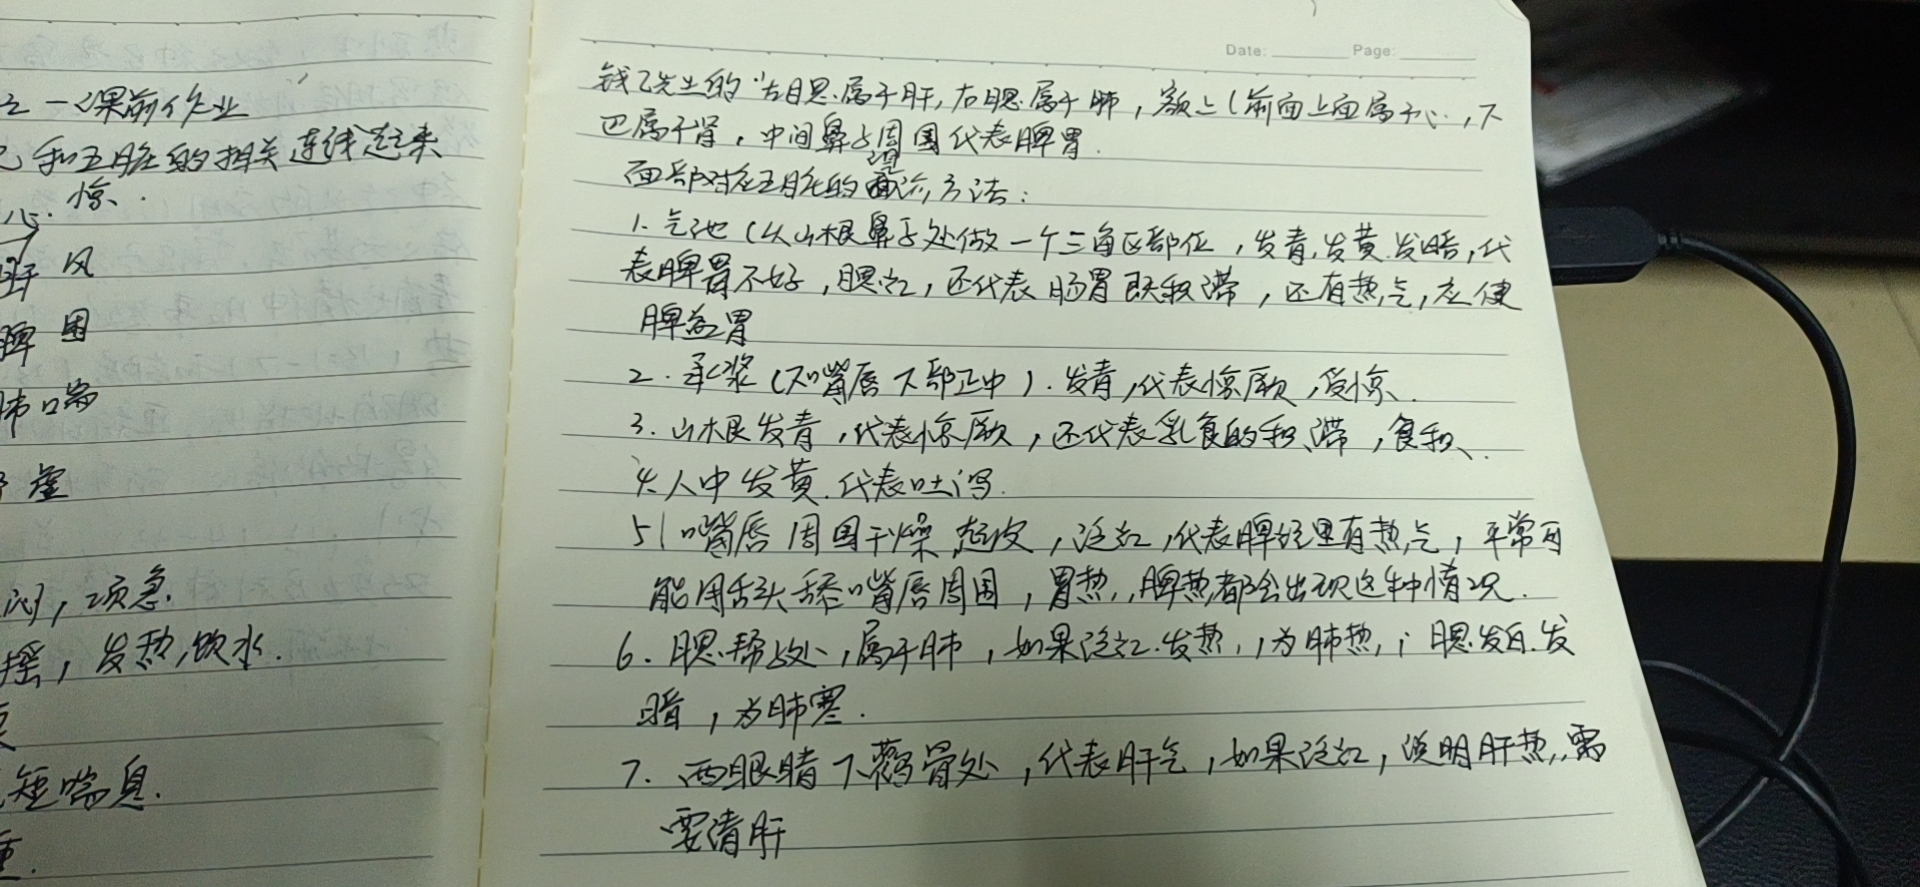 一课前作业
和五脏的相关连线起来
心.惊.
肝 风
脾 困
肺 喘
虚
闷,项急.
摇,发热,饮水.
短喘息.
重.
Date: Page:
钱乙先生的"左腮属于肝,右腮属于肺,额上(前面上面属于心.,下
巴属于肾,中间鼻子周围代表脾胃.
面部对应五脏的望诊方法:
1.气池(从山根鼻子处做一个三角区部位,发青,发黄.发暗,代
表脾胃不好,腮红,还代表肠胃既积滞,还有热气,应健
脾益胃
2.承浆(嘴唇下部正中).发青,代表惊厥,受惊.
3.山根发青,代表惊厥,还代表乳食的积滞,食积、.
4.人中发黄.代表吐泻.
5(嘴唇周围干燥,起皮,泛红,代表脾经里有热气,平常可
能用舌头舔嘴唇周围,胃热,,脾热都会出现这种情况.
6.腮帮处,属于肺,如果泛红.发热,,为肺热,;腮发白.发
暗,为肺寒.
7.两眼睛下颧骨处,代表肝气,如果泛红,说明肝热,,需
要清肝